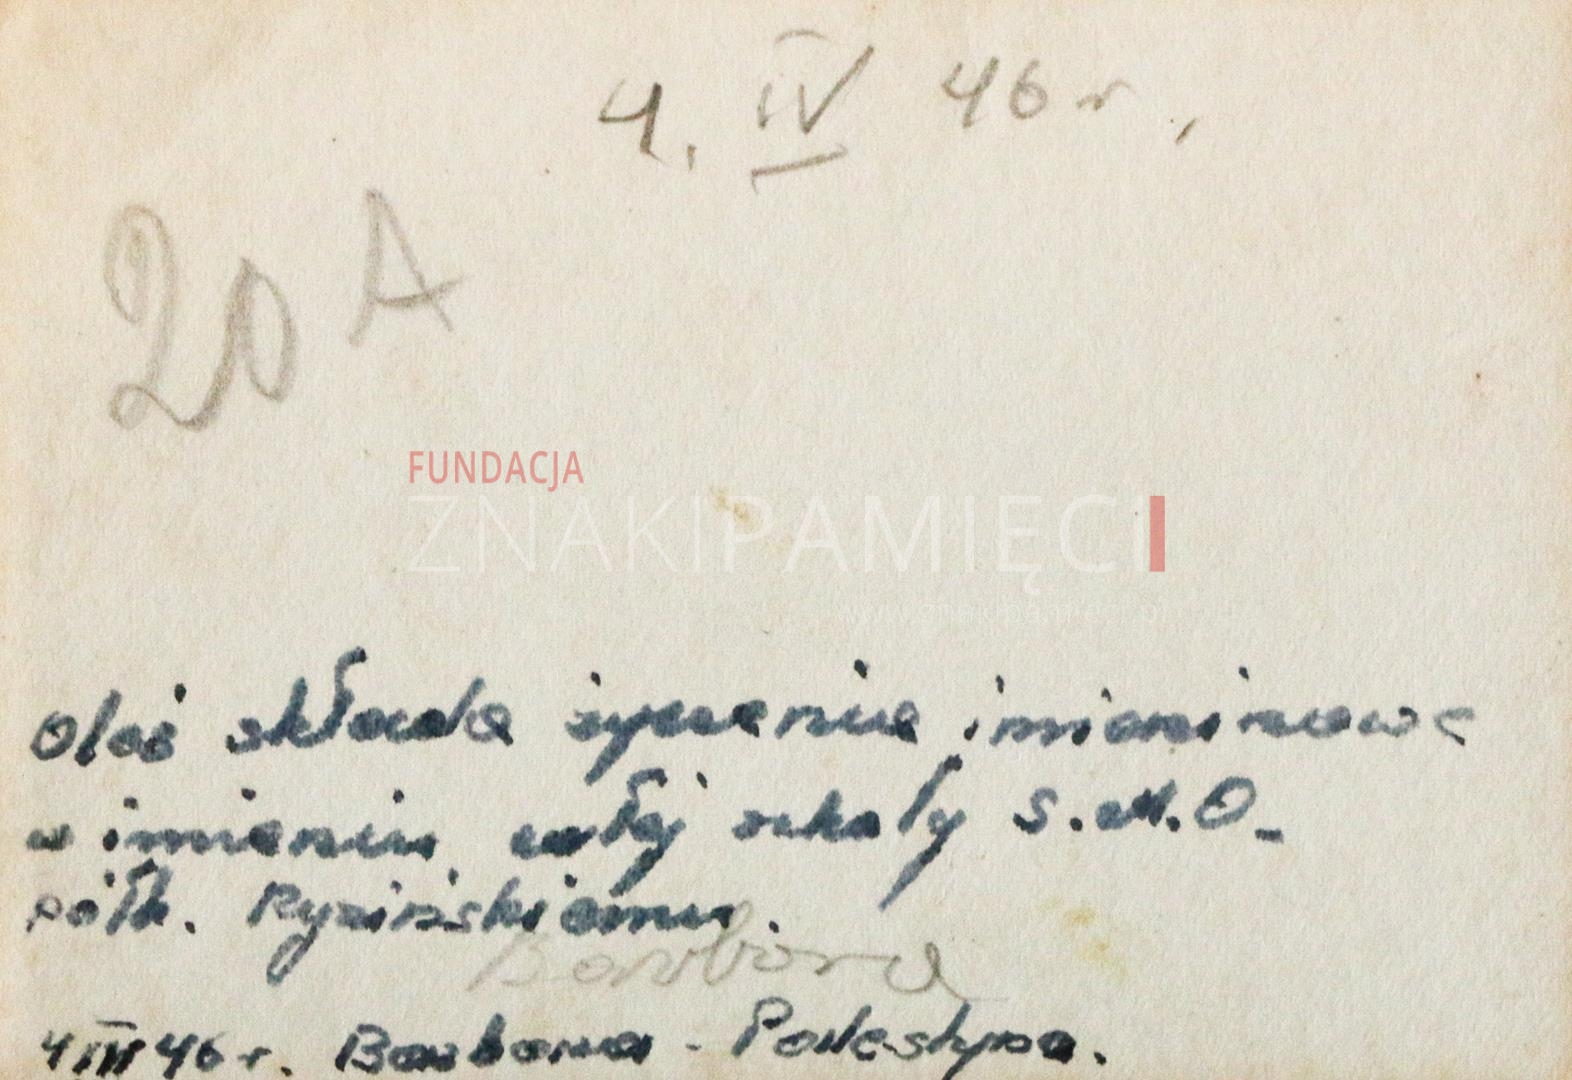 4. IV 46 r.,
20 A
FUNDACJA
ZNAKIPAMIĘCI
www.znakipamieci.pl
Oleś składa życzenia imieninowe
w imieniu całej szkoły S.M.O.
półk. Ryzińskiemu.
Barbara
4 IV 46 r. Barbara - Palestyna.